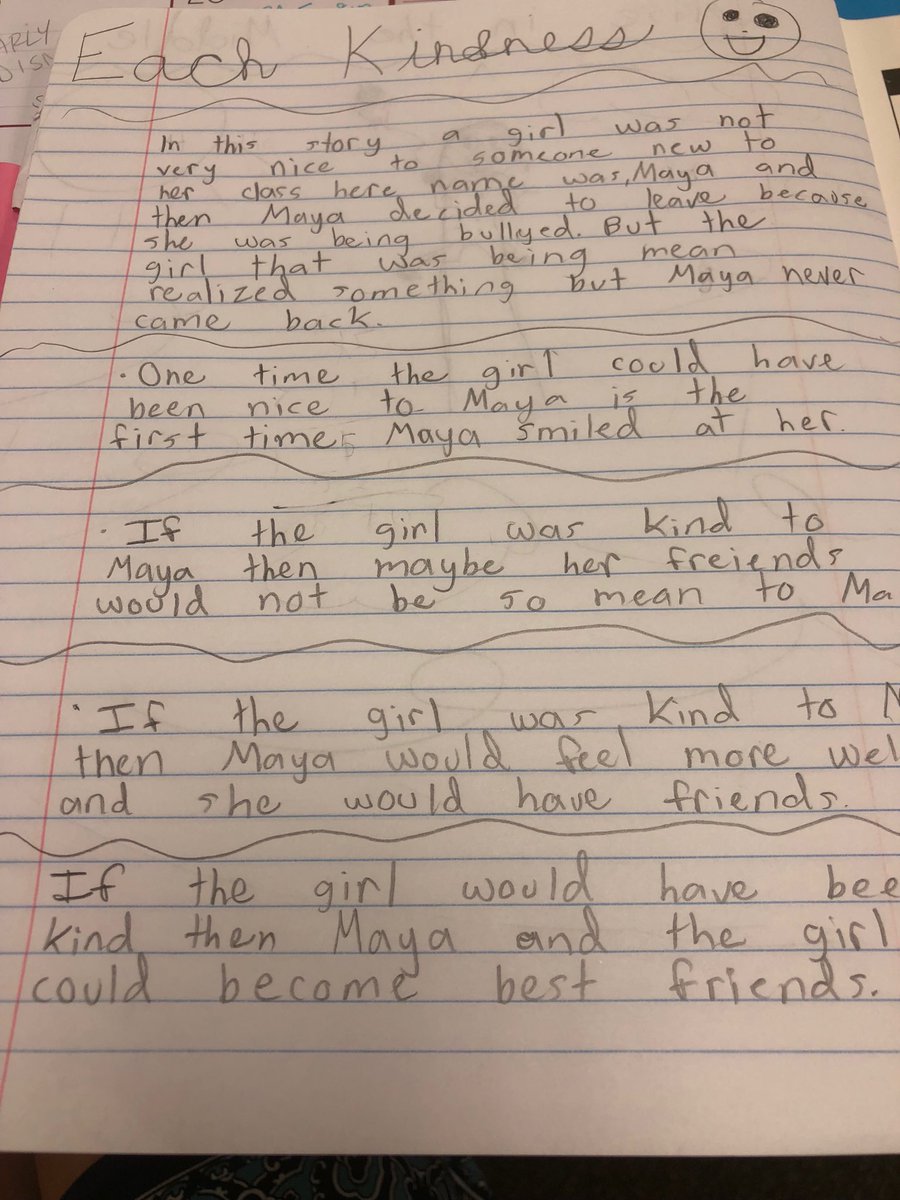 ARLY
Each Kindness
In this story a girl was not
very nice to someone new to
her class here name was, Maya and
then Maya decided to leave because
she was being bullyed. But the
girl that was being mean
realized something but Maya never
came back.
· One time the girl could have
been nice to Maya is the
first time Maya smiled at her.
· If the girl was kind to
Maya then maybe her freiends
would not be so mean to Ma
· If the girl was kind to
then Maya would feel more wel
and she would have friends.
If the girl would have bee
kind then Maya and the girl
could become best friends.